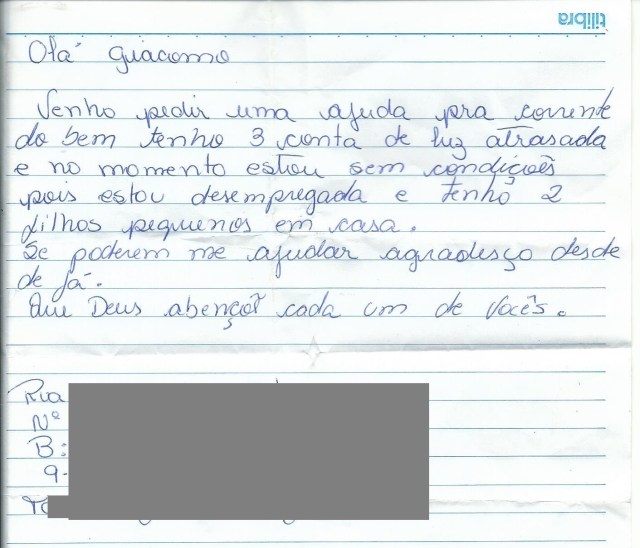 tilibra
Olá Giacomo
Venho pedir uma ajuda pra corrente
do bem tenho 3 conta de luz atrasada
e no momento estou sem condições
pois estou desempregada e tenho 2
filhos pequenos em casa.
Se poderem me ajudar agradesço desde
de já.
Que Deus abençõe cada um de vocês.
Rua
Nº
B:
9-